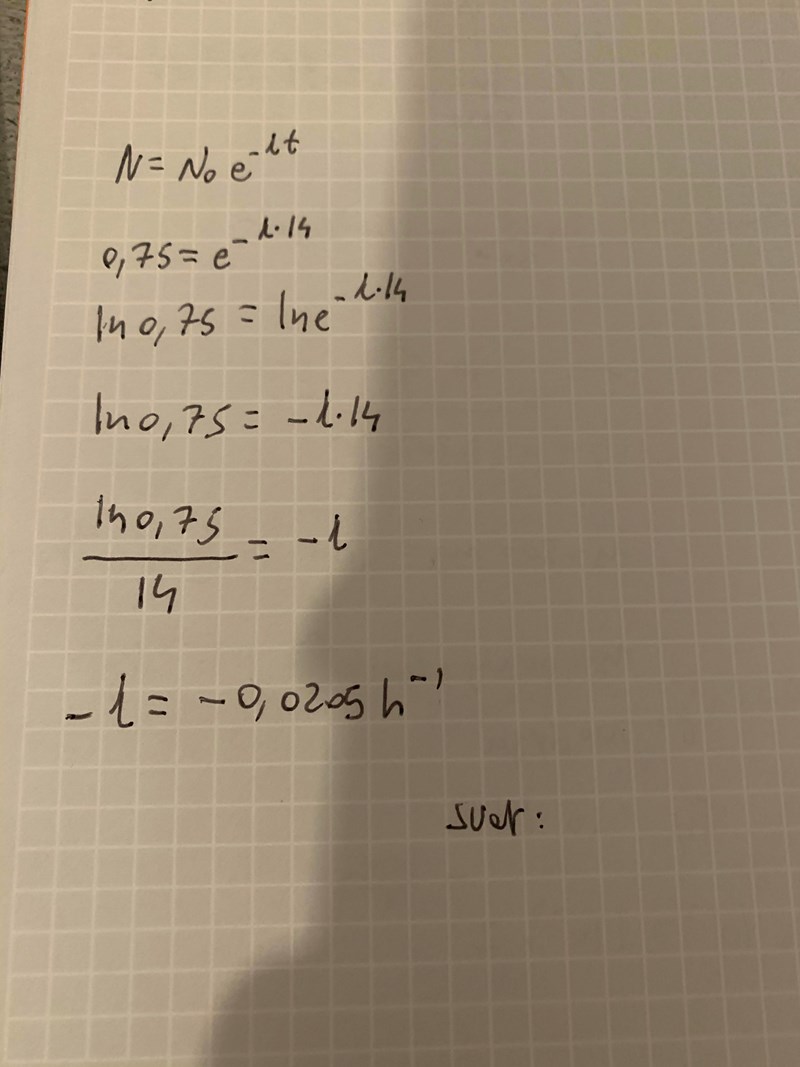 N = N₀ e^-λt
0,75 = e^-λ·14
ln 0,75 = ln e^-λ·14
ln 0,75 = -λ·14
ln 0,75 / 14 = -λ
-λ = -0,0205 h^-1
svar: